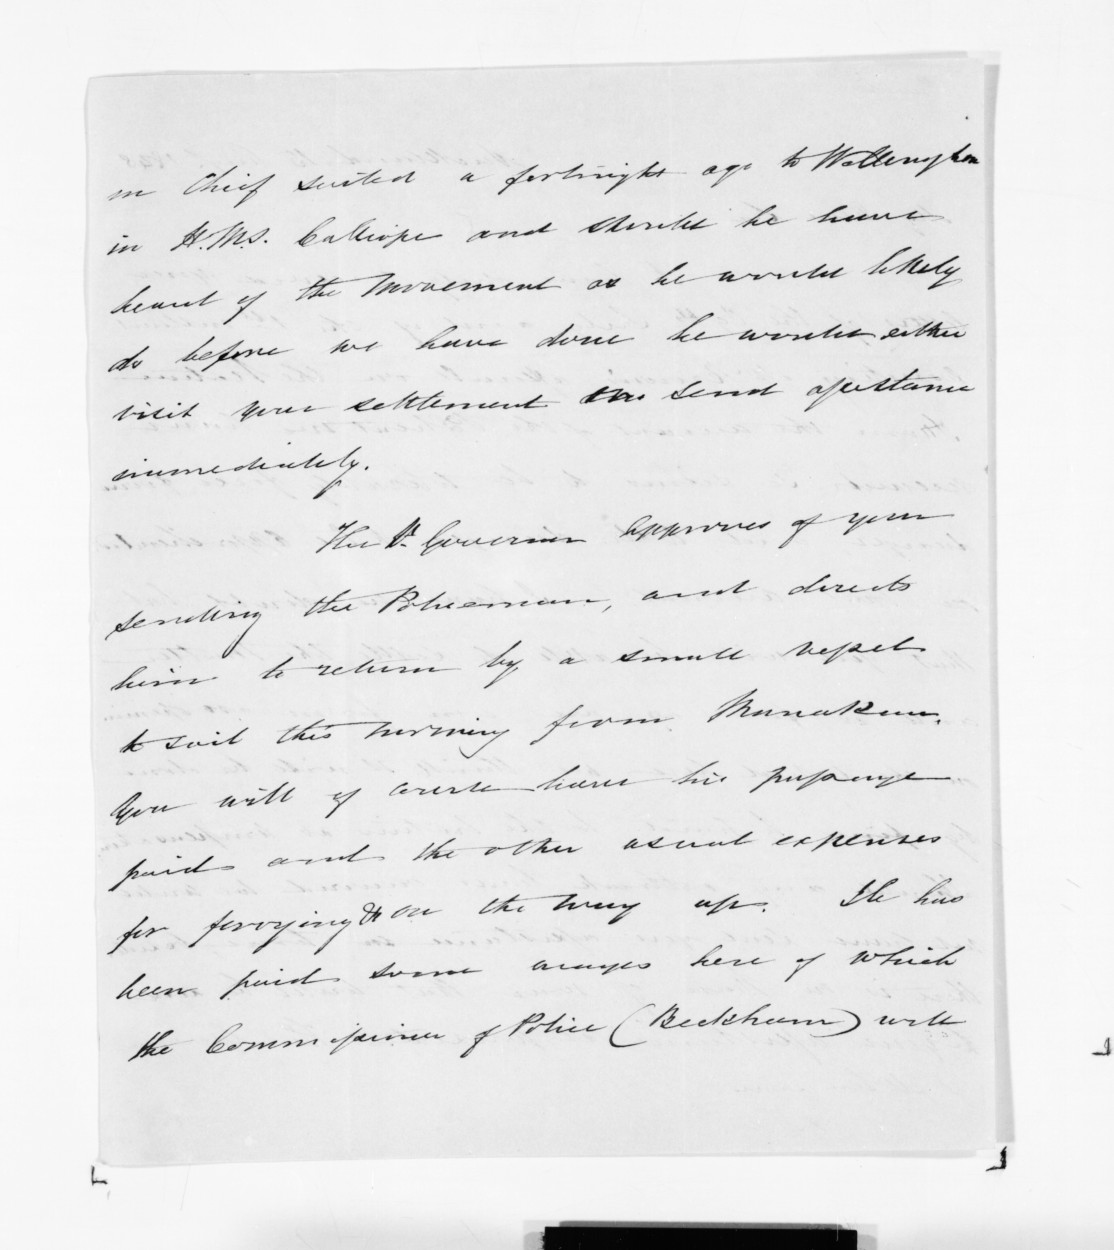 in Chief sailed a fortnight ago to Wellington
in H.M.S. Calliope and should he have
heard of the movement as he would likely
do before we have done he would either
visit your settlement or send assistance
immediately.
The Lt. Governor approves of your
sending the Policeman, and directs
him to return by a small vessel
to sail this morning from Manakau.
You will of course have his passage
paid and the other usual expenses
for ferrying &c on the way up. He has
been paid some wages here of which
the Commissioner of Police (Beckham) will